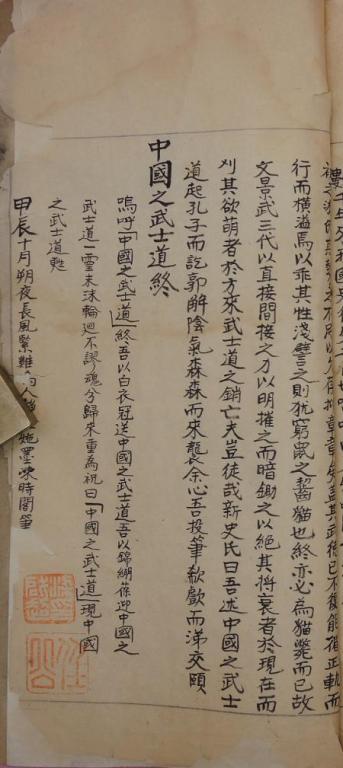 其武德已不復能循正軌而
行而橫溢焉以乖其性淺譬之則猶窮鼠之齧貓也終亦必為貓斃而已故
文景武三代以直接間接之力以明摧之而暗鋤之以絕其將衰者於現在而
刈其欲萌者於方來武士道之銷亡夫豈徒哉新史氏曰吾述中國之武士
道起孔子而訖郭解陰氣森森而來襲余心吾投筆欷歔而涕交頤
中國之武士道終
嗚呼「中國之武士道」終吾以白衣冠送中國之武士道吾以錦繃葆迎中國之
武士道一靈未沫輪迴不謬魂兮歸來重為祝曰「中國之武士道」現中國
之武士道甦
甲辰十月朔夜長風緊難 墨凍時閣筆
任公